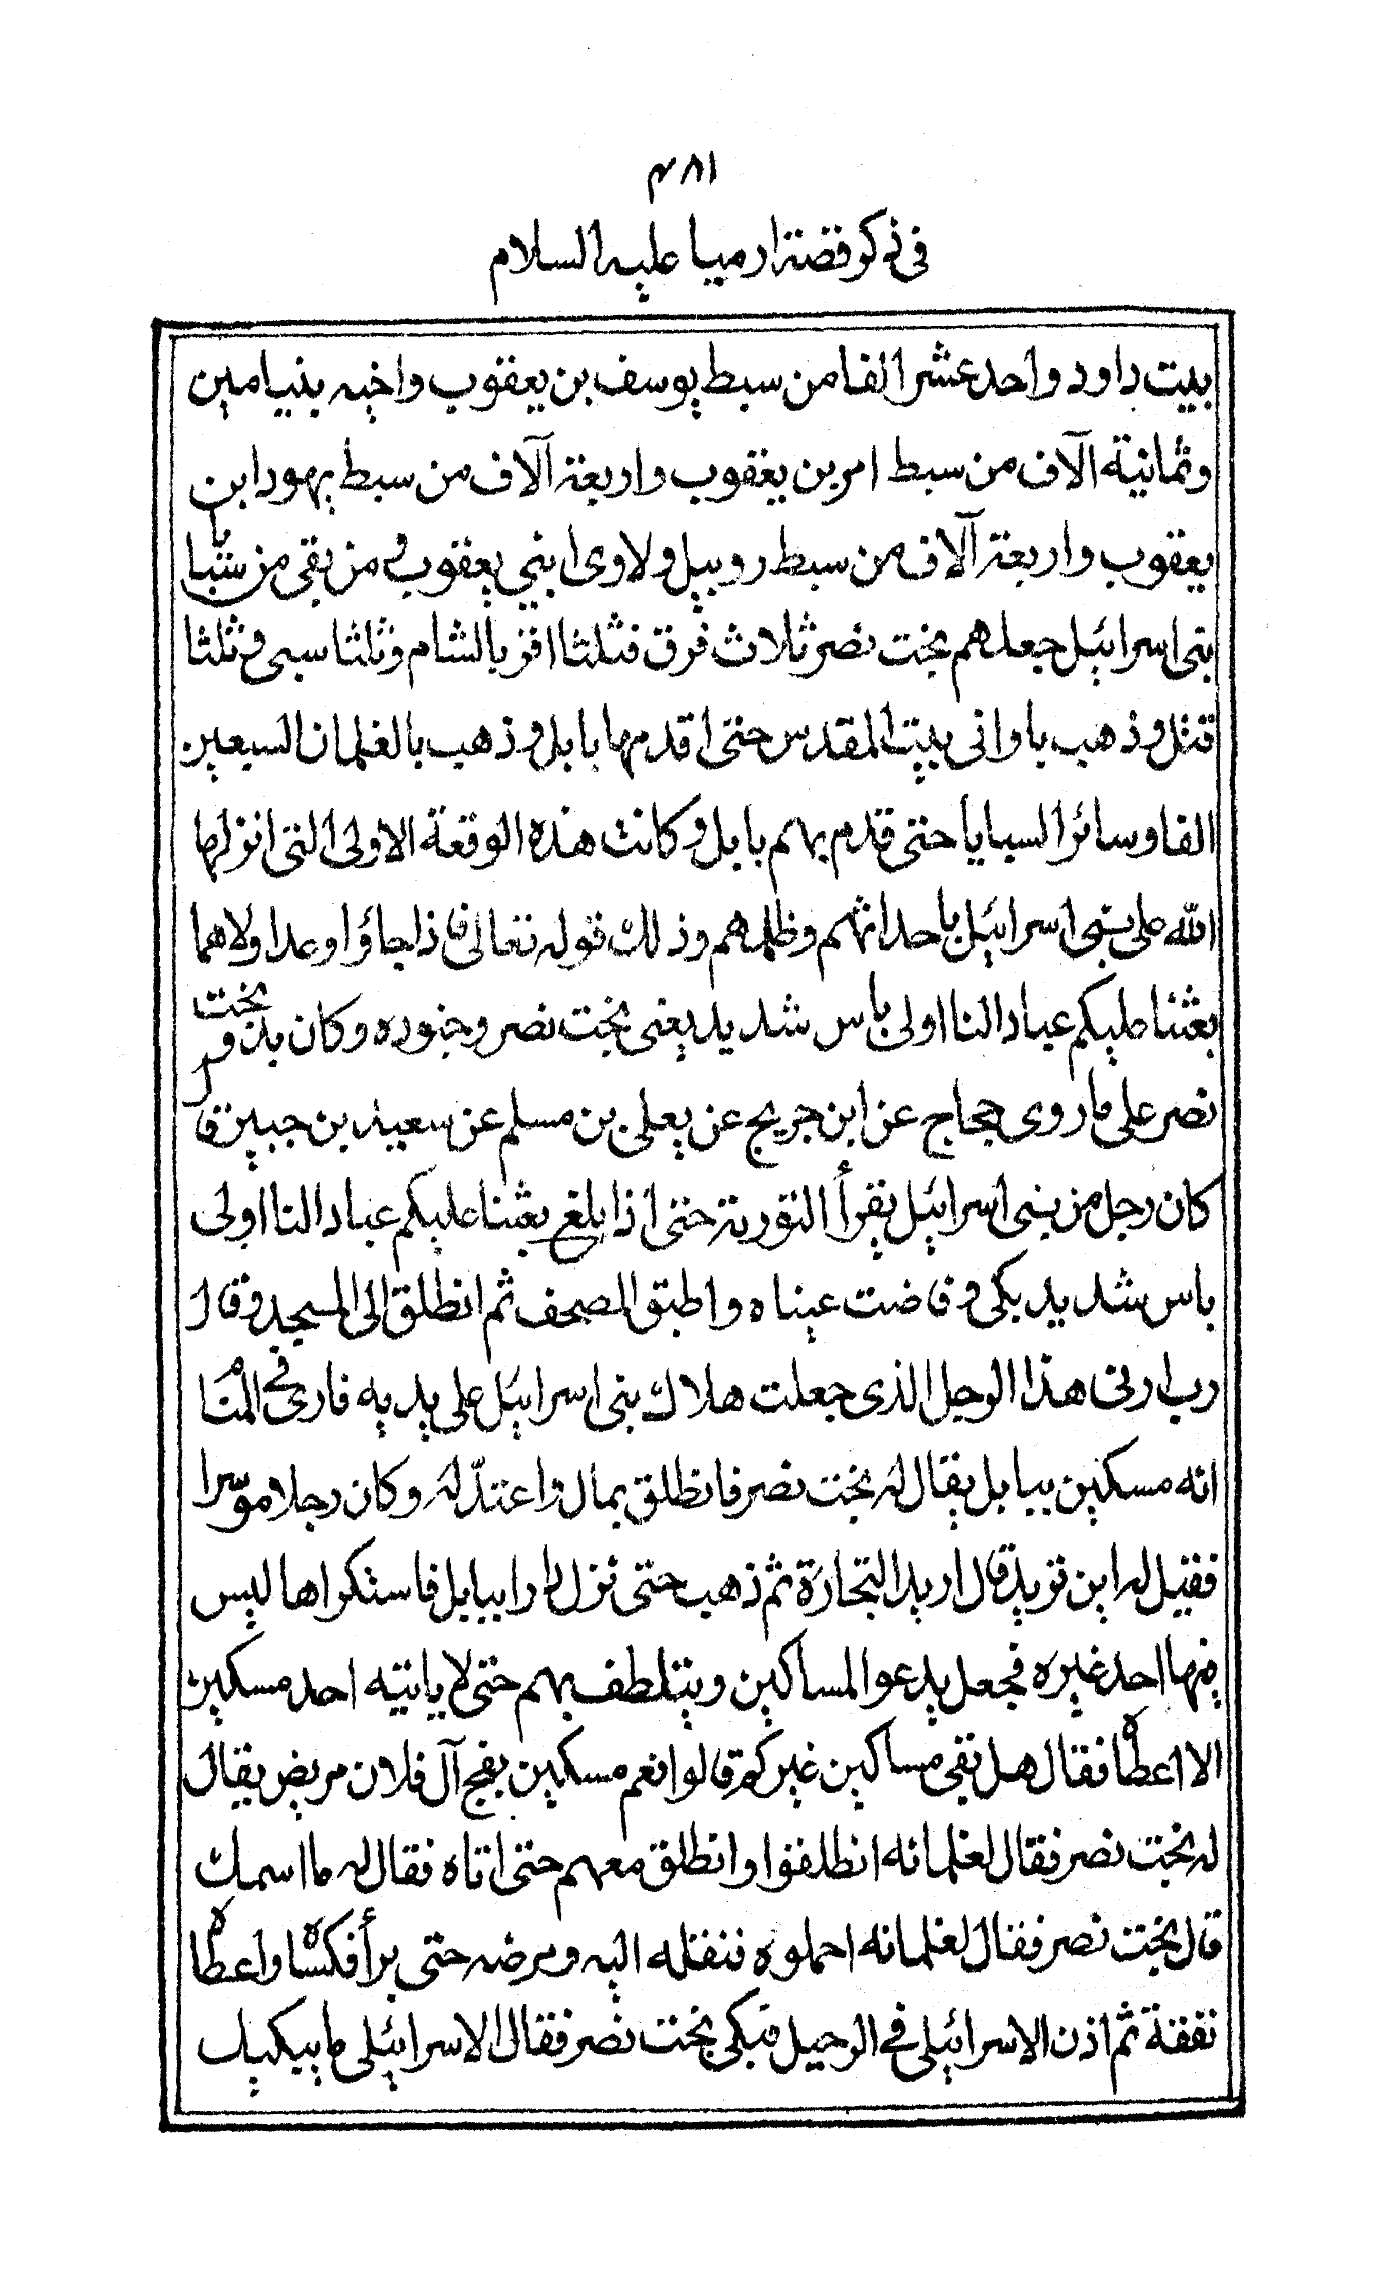 ٤٨١
فى ذكر قصة ارميا عليه السلام
بيت داود واحد عشر الفا من سبط يوسف بن يعقوب واخيه بنيامين
وثمانية الآف من سبط امر بن يعقوب واربعة الآف من سبط يهودا بن
يعقوب واربعة الآف من سبط روبيل ولاوى ابنى يعقوب ومن بقى من سبايا
بنى اسرائيل جعلهم بخت نصر ثلاث فرق فثلثا اقر بالشام وثلثا سبى وثلثا
قتل وذهب باوانى بيت المقدس حتى اقدمها بابل وذهب بالغلمان السبعين
الفا وسائر السبايا حتى قدم بهم بابل وكانت هذه الوقعة الاولى التى انزلها
الله على بنى اسرائيل باحداثهم وظلمهم وذلك قوله تعالى فاذا جاؤا وعد اولاهما
بعثنا عليكم عبادا لنا اولى باس شديد يعنى بخت نصر وجنوده وكان بدؤ امر بخت
نصر على ما روى حجاج عن ابن جريج عن يعلى بن مسلم عن سعيد بن جبير قال
كان رجل من بنى اسرائيل يقرأ التورية حتى اذا بلغ بعثنا عليكم عبادا لنا اولى
باس شديد بكى وفاضت عيناه واطبق المصحف ثم انطلق الى المسجد وقال
رب ارنى هذا الرجل الذى جعلت هلاك بنى اسرائيل على يديه فارى فى المنام
انه مسكين ببابل يقال له بخت نصر فانطلق بمال واعتدّ له وكان رجلا موسرا
فقيل له اين تريد قال اريد التجارة ثم ذهب حتى نزل دارا ببابل فاستكراها ليس
فيها احد غيره فجعل يدعو المساكين ويتلطف بهم حتى لم ياتيه احد مسكين
الا اعطاه فقال هل بقى مساكين غيركم قالوا نعم مسكين بفج آل فلان مريض يقال
له بخت نصر فقال لغلمانه انطلقوا وانطلق معهم حتى اتاه فقال له ما اسمك
قال بخت نصر فقال لغلمانه احملوه فنقله اليه ومرضه حتى برأ فكساه واعطاه
نفقة ثم اذن الاسرائيلى فى الرحيل فبكى بخت نصر فقال الاسرائيلى ما يبكيك